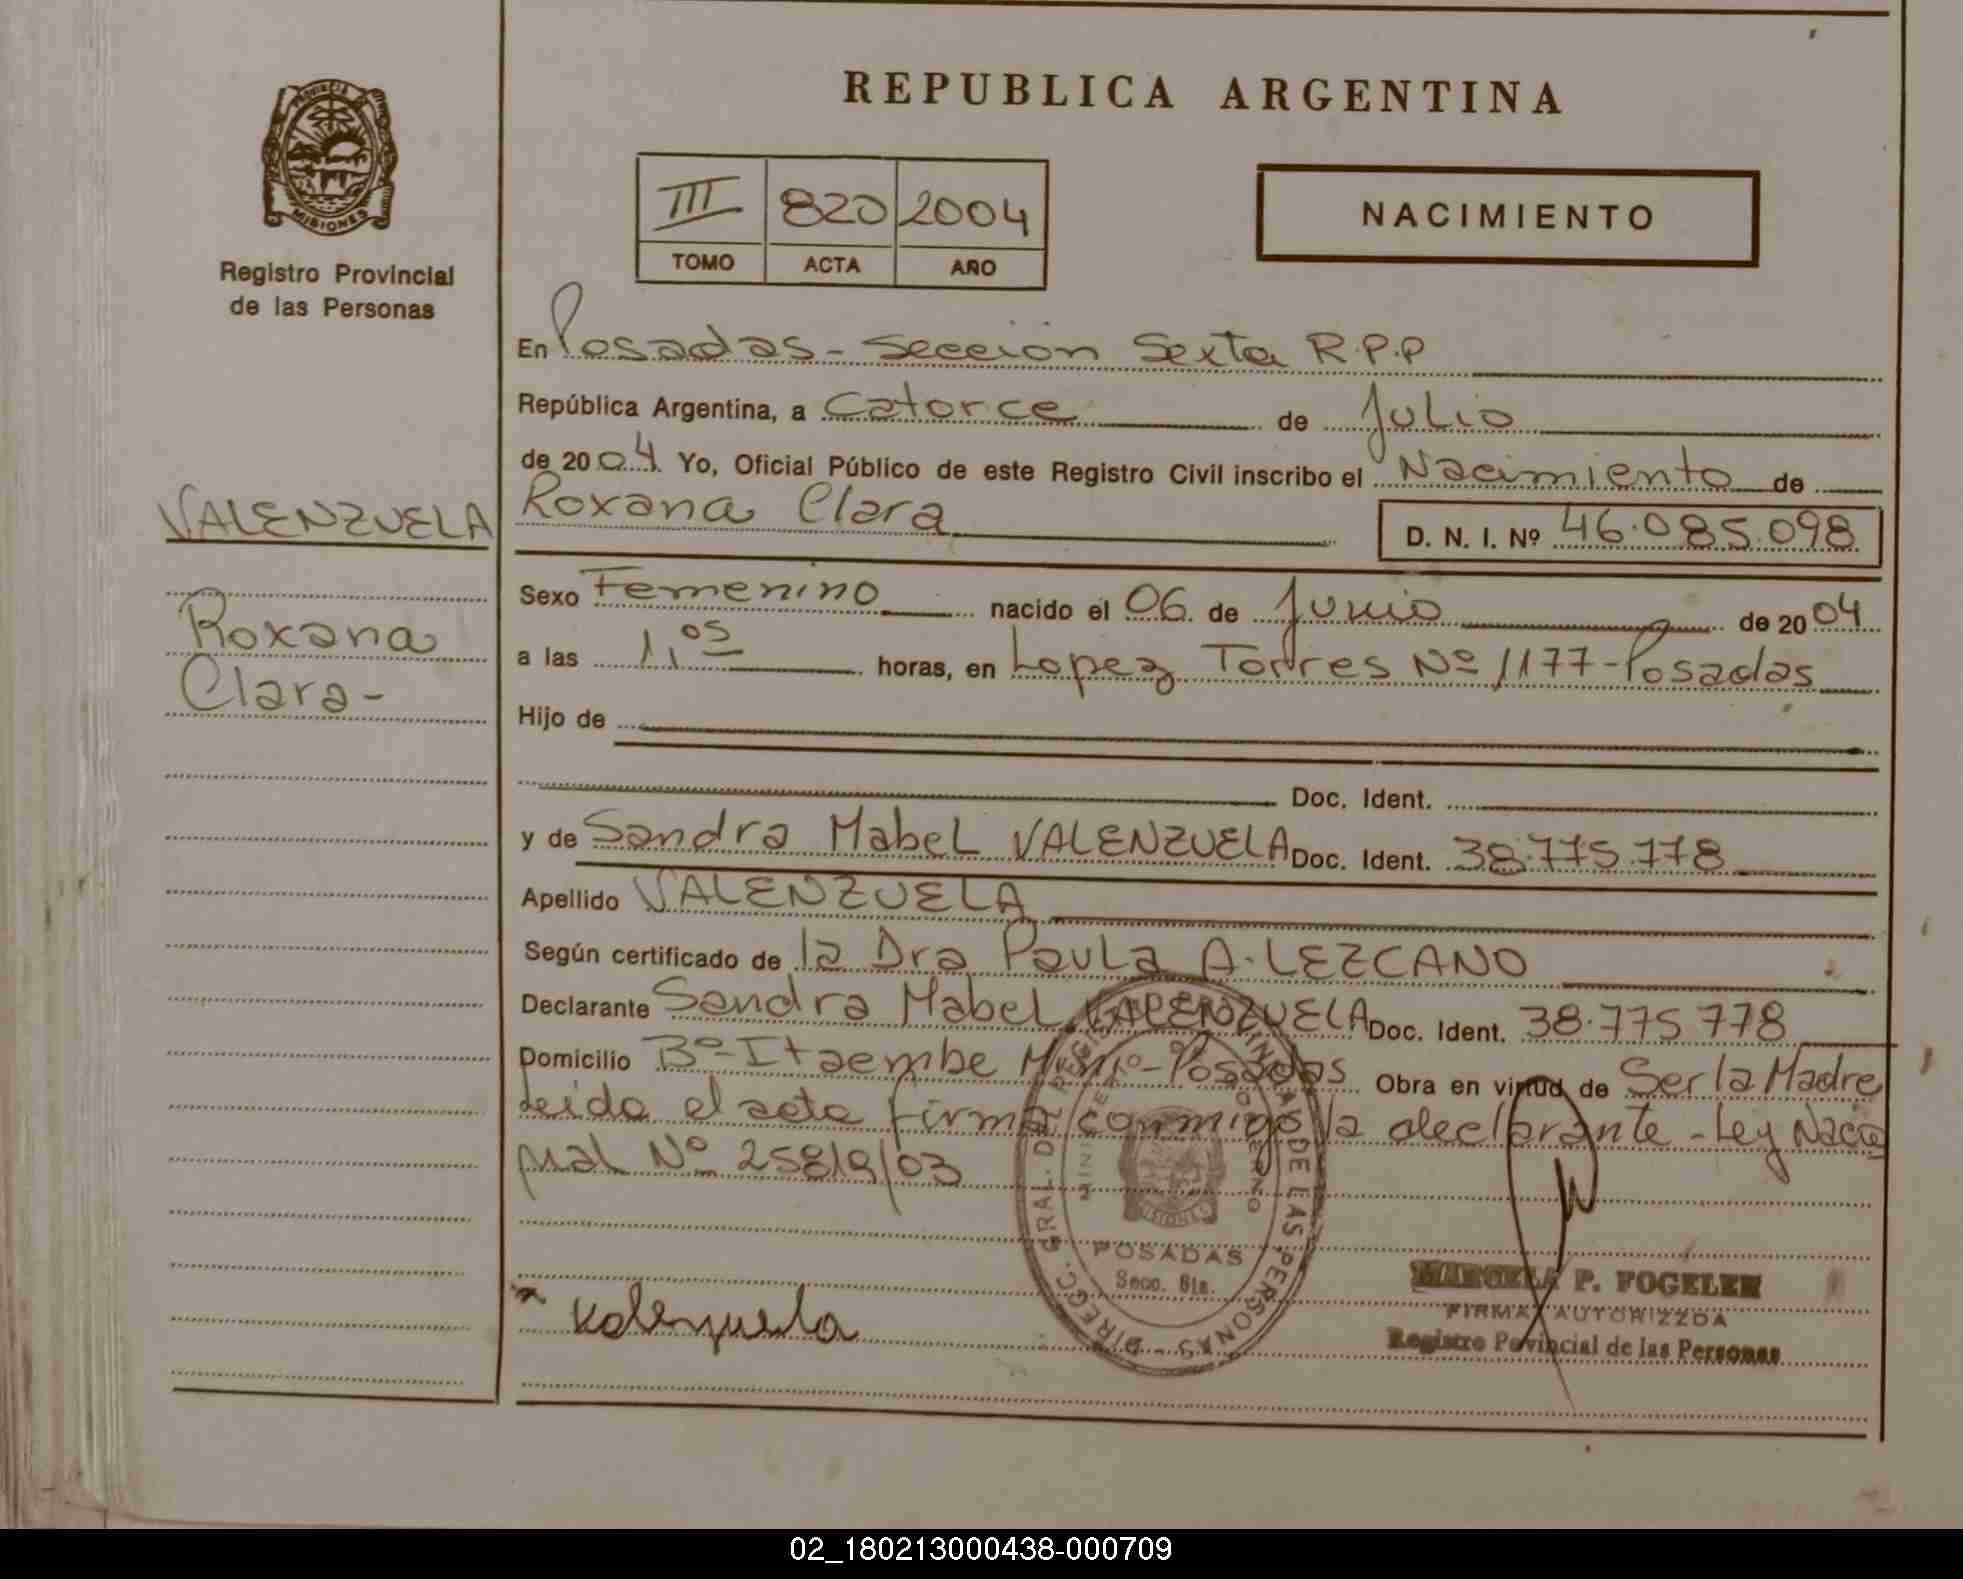 PROVINCIA DE
MISIONES
Registro Provincial
de las Personas
VALENZUELA
Roxana
Clara-
REPUBLICA ARGENTINA
III 820 2004
TOMO ACTA AÑO
NACIMIENTO
En Posadas - Sección Sexta R.P.P
República Argentina, a Catorce de Julio
de 2004 Yo, Oficial Público de este Registro Civil inscribo el Nacimiento de
Roxana Clara
D. N. I. Nº 46.085.098
Sexo Femenino nacido el 06 de Junio de 2004
a las 1,05 horas, en Lopez Torres Nº 1177-Posadas
Hijo de
Doc. Ident.
y de Sandra Mabel VALENZUELA Doc. Ident. 38.775.778
Apellido VALENZUELA
Según certificado de la Dra Paula A. LEZCANO
Declarante Sandra Mabel VALENZUELA Doc. Ident. 38.775 778
Domicilio Bº-Itaembe Mini-Posadas Obra en virtud de Ser la Madre
Leida el acta firma conmigo la declarante - Ley Nacio
nal Nº 25819/03
DIREGC. GRAL. DEL REGISTRO DE LAS PERSONAS
MISIONES
POSADAS
Secc. 6ta.
Valenzuela
MARCELA P. FOGELER
FIRMA AUTORIZZDA
Registro Povincial de las Personas
02_180213000438-000709